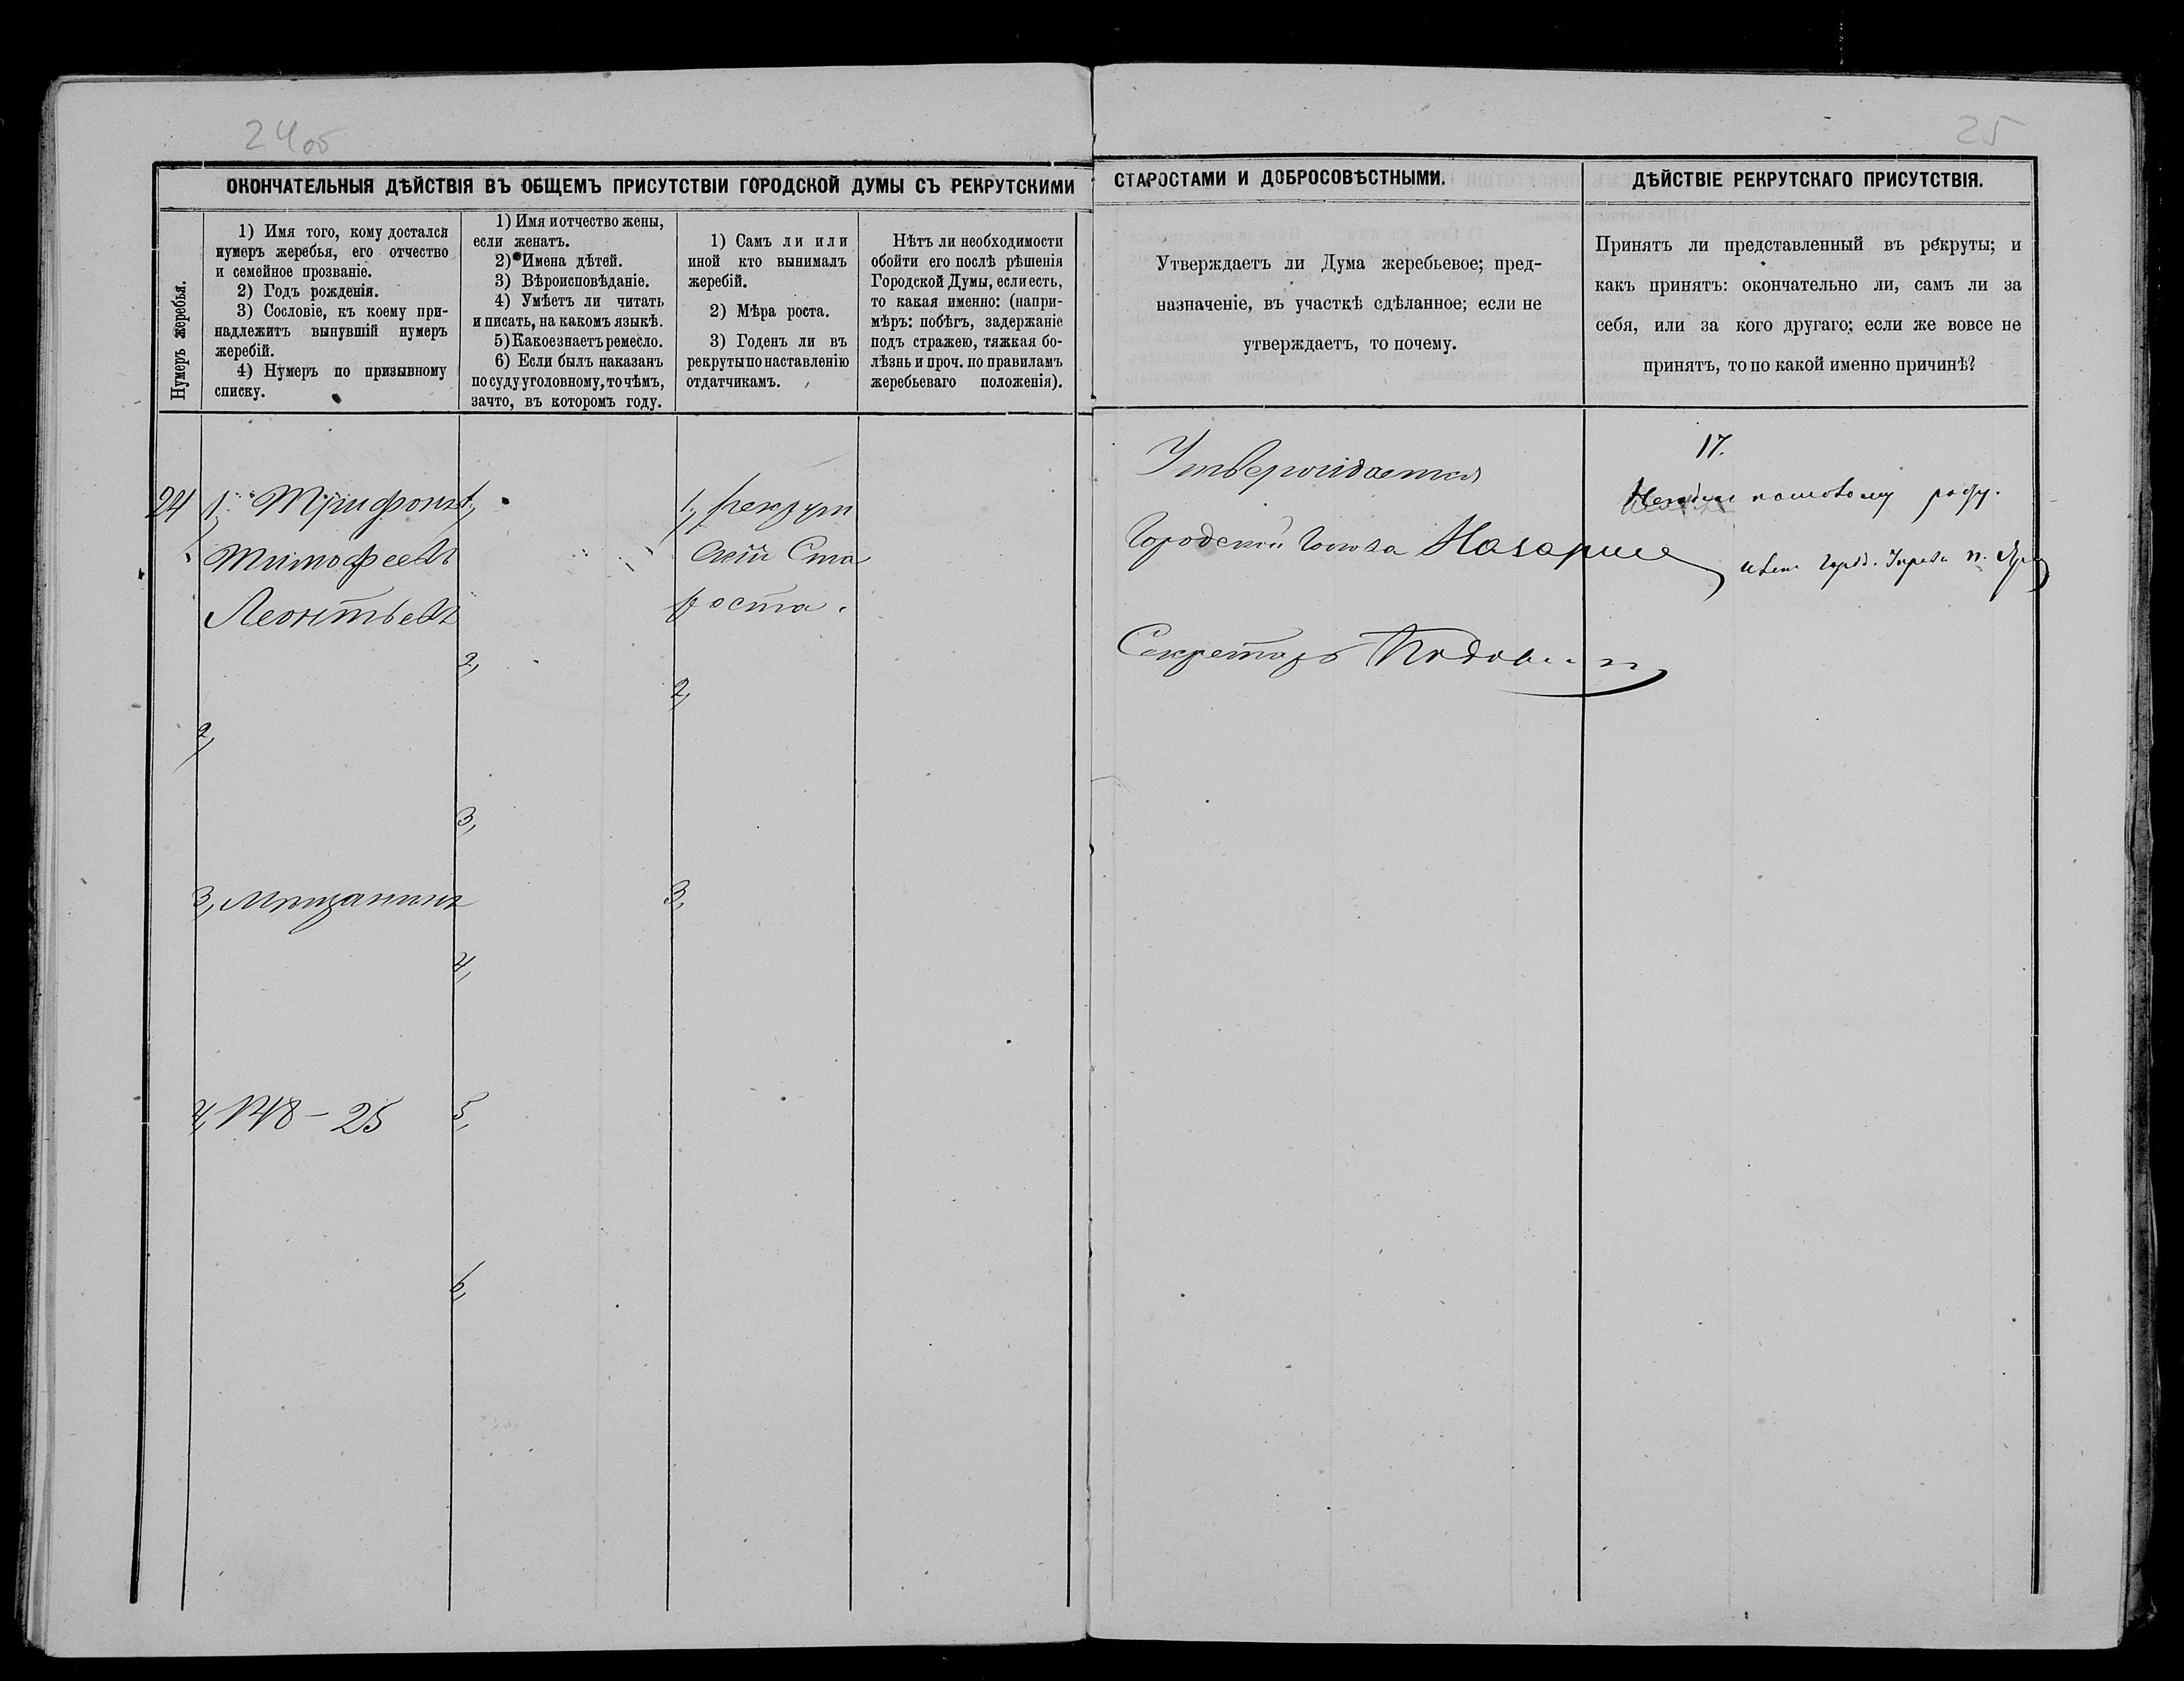 24 об
25
ОКОНЧАТЕЛЬНЫЯ ДѢЙСТВІЯ ВЪ ОБЩЕМЪ ПРИСУТСТВІИ ГОРОДСКОЙ ДУМЫ СЪ РЕКРУТСКИМИ
СТАРОСТАМИ И ДОБРОСОВѢСТНЫМИ.
ДѢЙСТВІЕ РЕКРУТСКАГО ПРИСУТСТВІЯ.
Нумеръ жеребья.
1) Имя того, кому достался
нумеръ жеребья, его отчество
и семейное прозваніе.
2) Годъ рожденія.
3) Сословіе, къ коему при-
надлежитъ вынувшій нумеръ
жеребій.
4) Нумеръ по призывному
списку.
1) Имя и отчество жены,
если женатъ.
2) Имена дѣтей.
3) Вѣроисповѣданіе.
4) Умѣетъ ли читать
и писать, на какомъ языкѣ.
5) Какое знаетъ ремесло.
6) Если былъ наказанъ
по суду уголовному, то чѣмъ,
за что, въ которомъ году.
1) Самъ ли или
иной кто вынималъ
жеребій.
2) Мѣра роста.
3) Годенъ ли въ
рекруты по наставленію
отдатчикамъ.
Нѣтъ ли необходимости
обойти его послѣ рѣшенія
Городской Думы, если есть,
то какая именно: (напри-
мѣръ: побѣгъ, задержаніе
подъ стражею, тяжкая бо-
лѣзнь и проч. по правиламъ
жеребьеваго положенія).
Утверждаетъ ли Дума жеребьевое; пред-
назначеніе, въ участкѣ сдѣланное; если не
утверждаетъ, то почему.
Принятъ ли представленный въ рекруты; и
какъ принятъ: окончательно ли, самъ ли за
себя, или за кого другаго; если же вовсе не
принятъ, то по какой именно причинѣ?
24
1, Трифонъ
Тимофеевъ
Леонтьевъ
2,
3, Мѣщанинъ
4, №48 – 25
1,
2,
3,
4,
5,
6,
1, рекрут
скій Ста
роста.
2,
3,
Утверждается
Городской Голова
Секретарь
17.